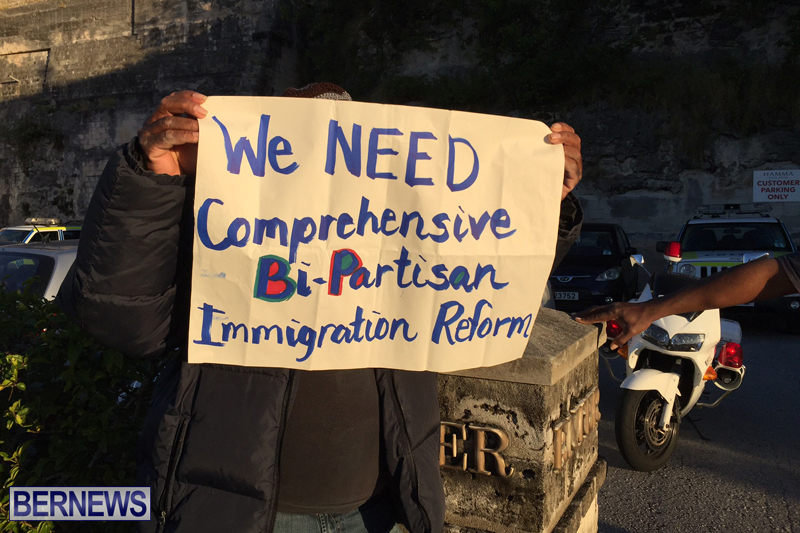 We NEED
Comprehensive
Bi-Partisan
Immigration Reform
CUSTOMER
PARKING
ONLY
ER
BERNEWS